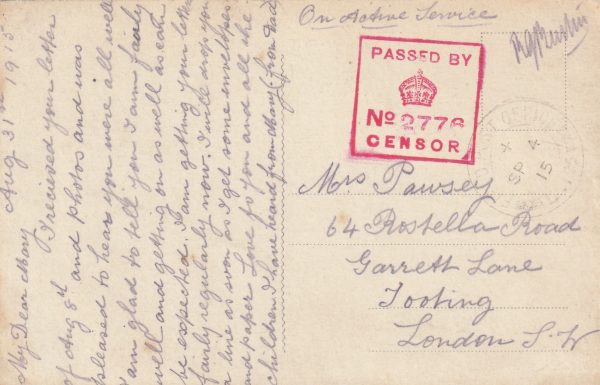 Aug 31st 1915
My Dear Mary
I recieved your letter
of Aug 8th and photos and was
pleased to hear you were all well
I am glad to tell you I am fairly
well and getting on as well as can
be expected. I am getting your letters
fairly regularly now. I will drop you
a line as soon as I get some envelopes
and paper Love to you and all the
children I have heard from Mary (from Dad
On Active Service
PASSED BY
No 2776
CENSOR
X
SP 4
15
Mrs Pawsey
64 Rostella Road
Garrett Lane
Tooting
London S.W